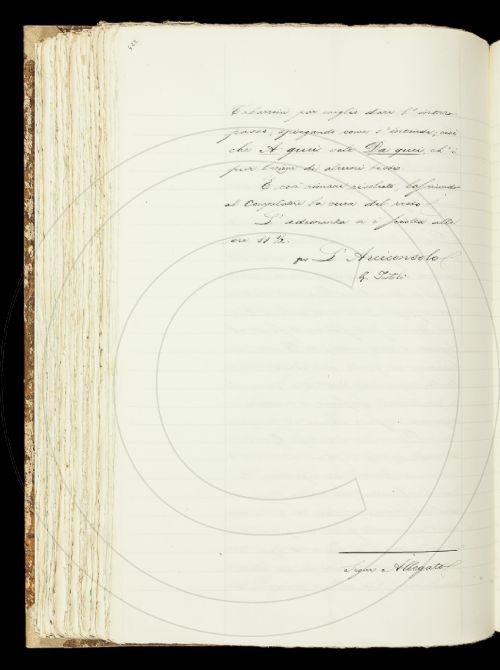 Tabarrini per meglio dare l'intero
passo, spiegando come s'intende; cioè
che A quei vale Da quei, ch'è
pur lezione di alcuni testi.
E così rimane risoluto, lasciando
al Compilatore la cura del resto.
L'adunanza si è sciolta alle
ore 11 ½.
per L'Arciconsolo
G. Tortoli
Segue Allegato